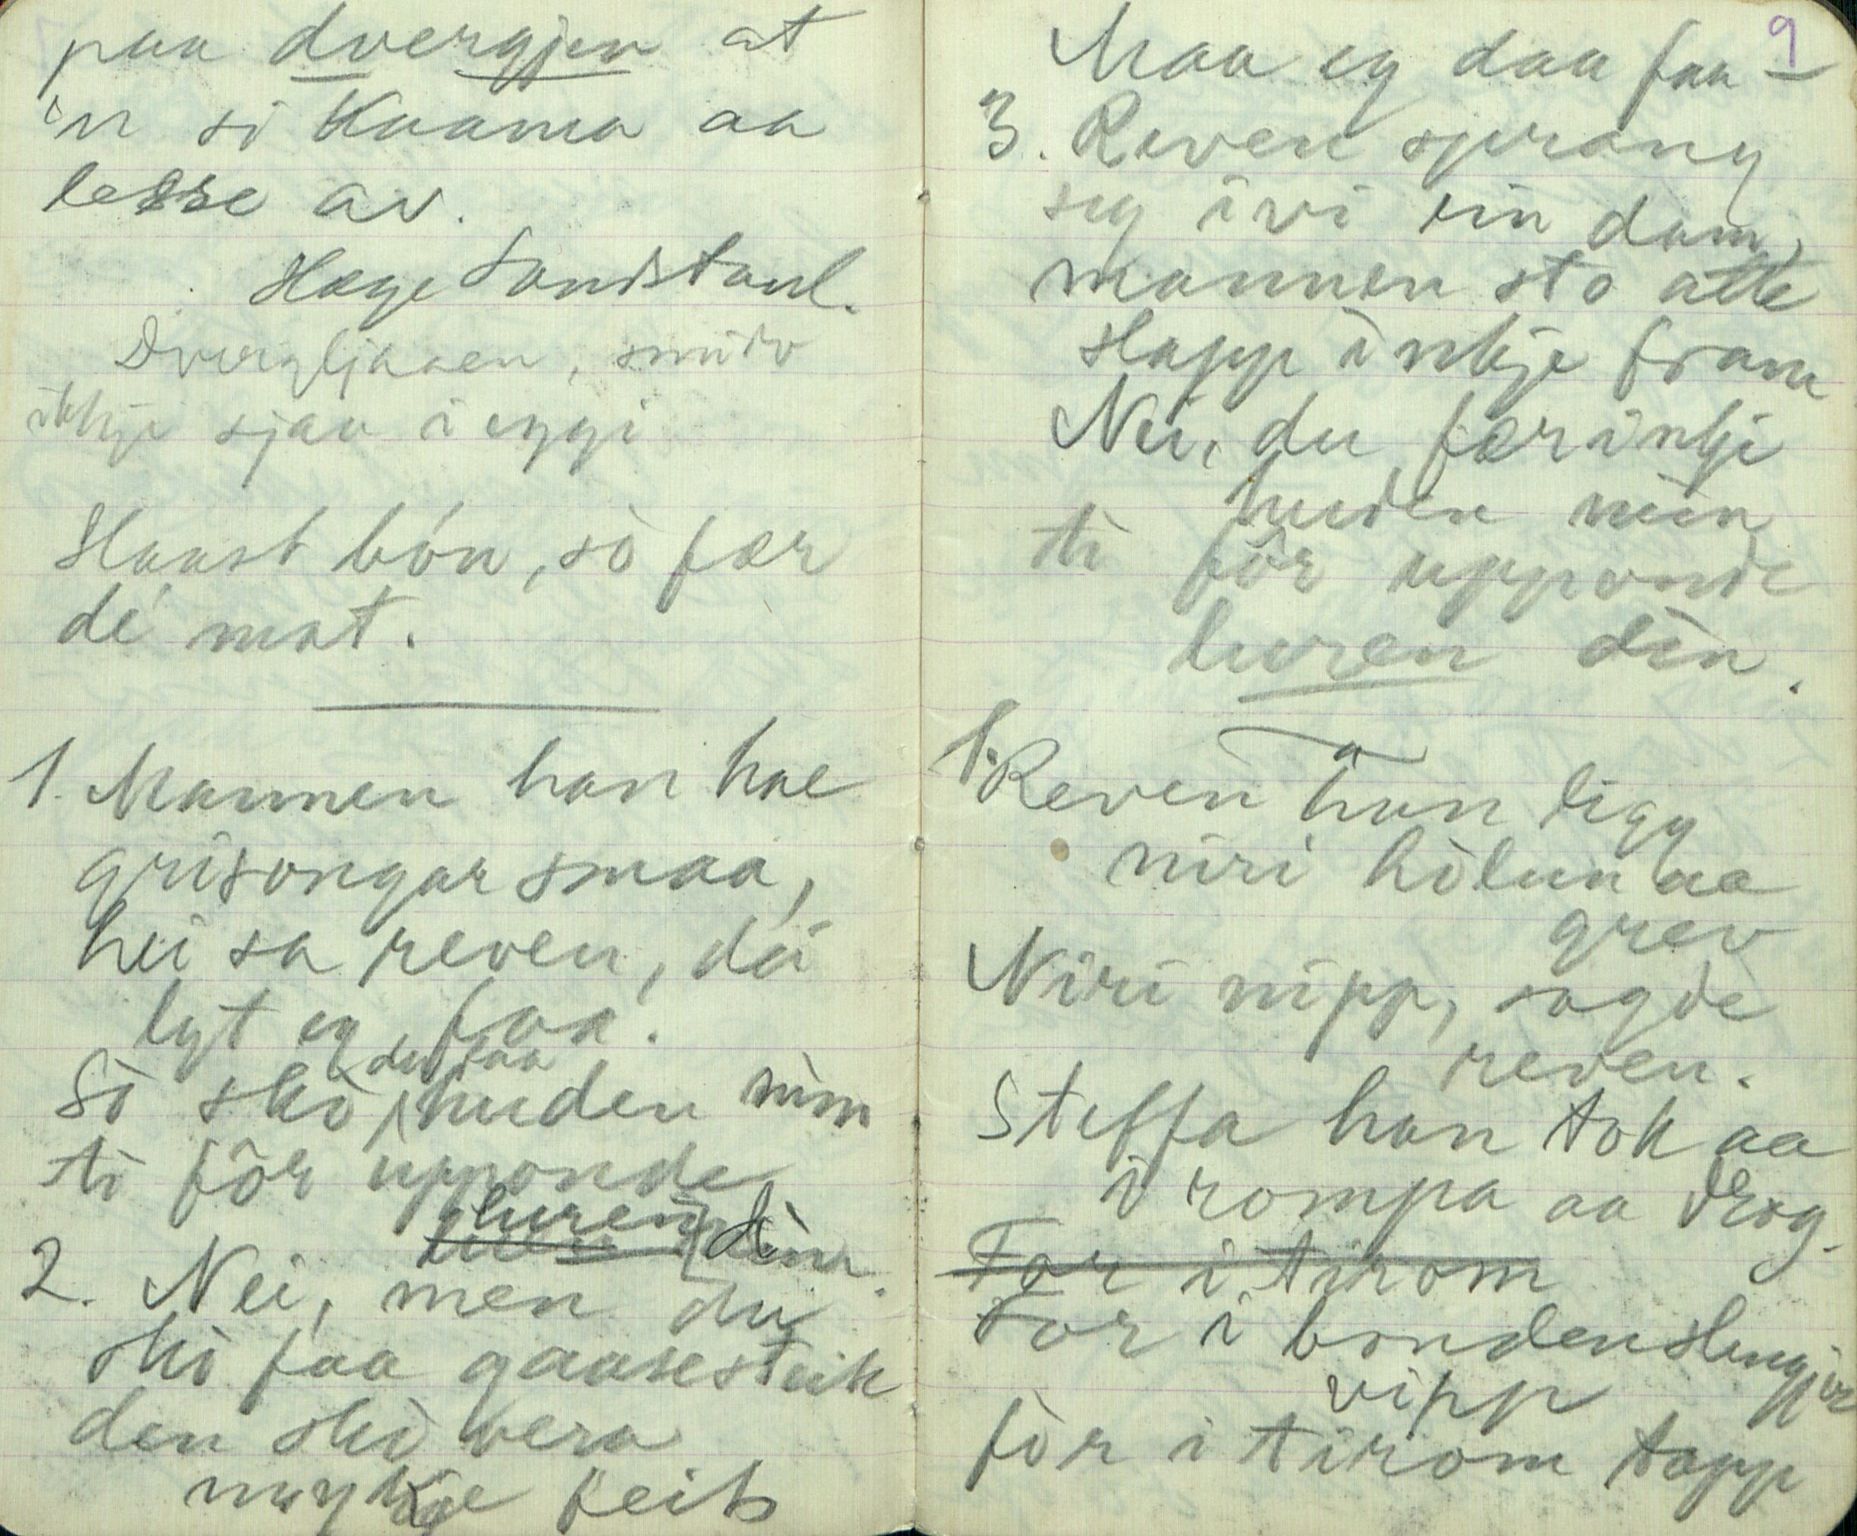 paa dvergjen at
'n si Kaama aa
lesse av.
Hæge Sandstaul.
Dvergljaaen, smidv
ikkje sjaa i eggi
Haast bón, sò fær
dé mat.
1. Mannen han hae
grisongar smaa,
hei sa reven, dei
lyt eg faa.
Sò skò du faa huden min
ti fôr upponde
luren din.
2. Nei, men du
skò faa gaasesteik
den skò vera
mykje feit
9
Maa eg daa faa –
3. Reven sprang
seg ivi ein dam,
mannen sto atte
slapp inkje fram
Nei, du fær inkje
huden min
ti fôr upponde
luren din.
1. Reven han ligg
niri hòlun aa
grev
Niri nipp, sagde
reven.
Steffa han tok aa
i rompa aa drog.
For i tirom
For i bondenslengjir
vipp
fòr i tirom tapp